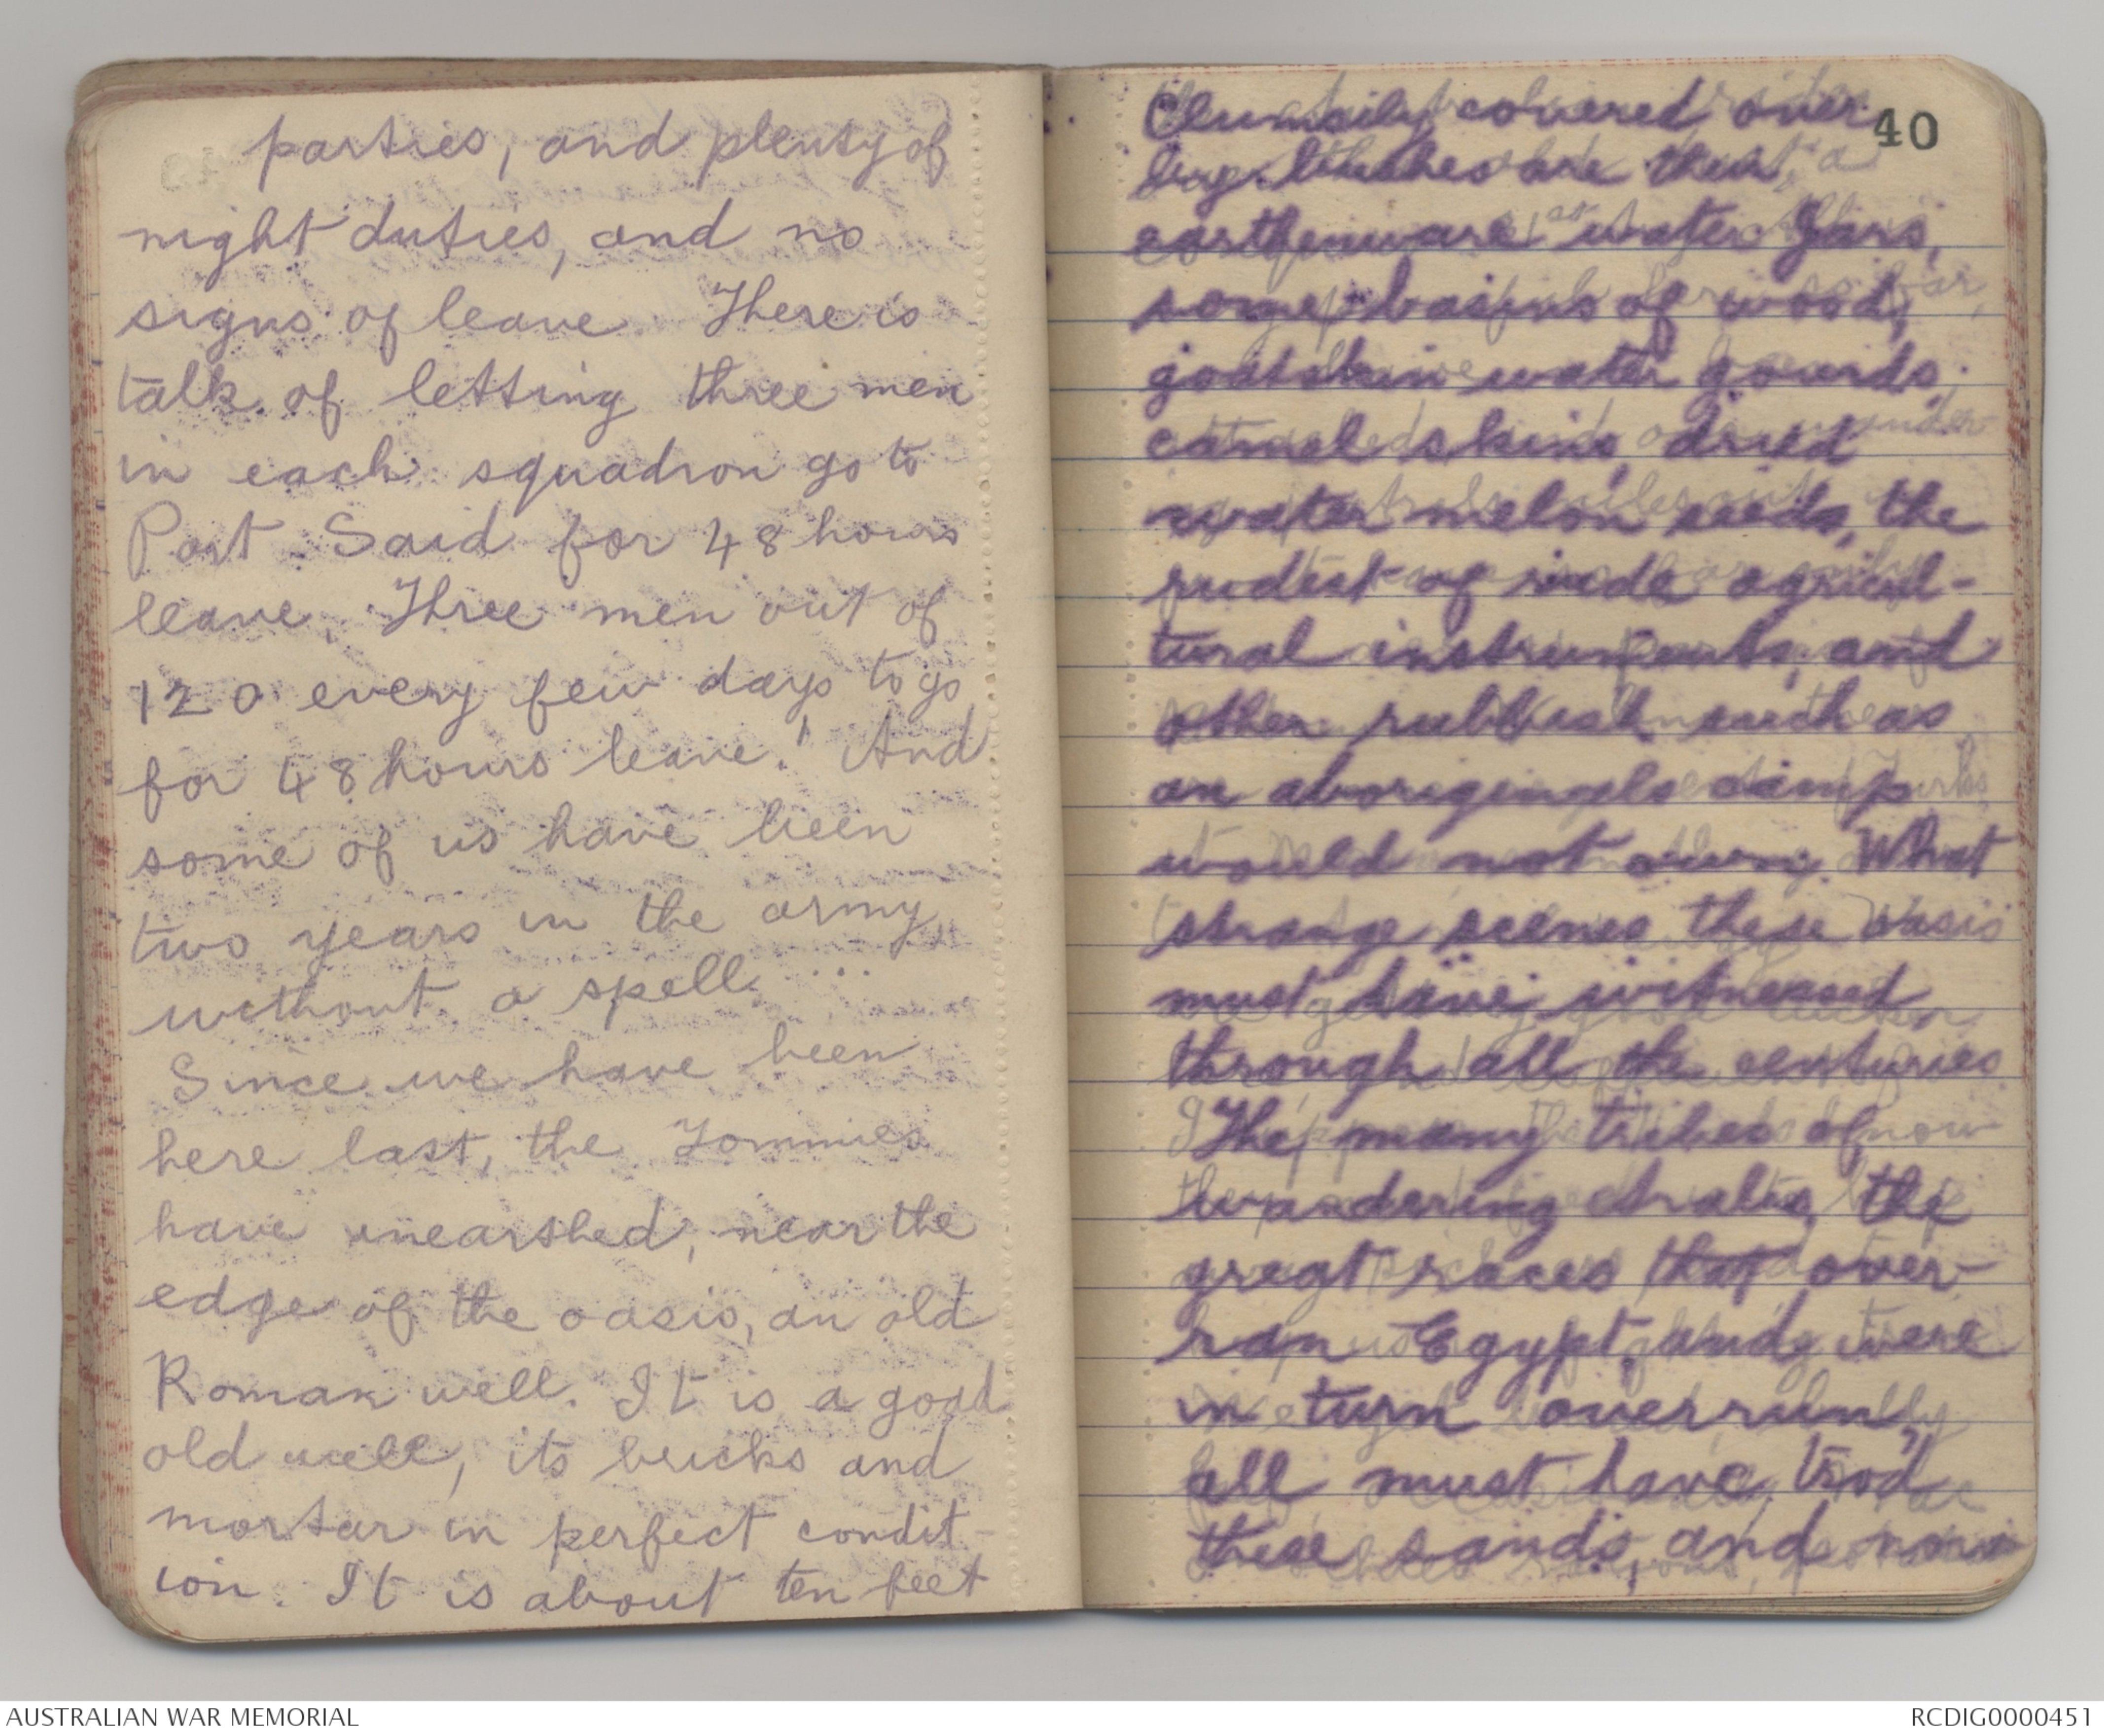 parties, and plenty of
night duties, and no
signs of leave. There is
talk of letting three men
in each squadron go to
Port Said for 48 hours
leave. Three men out of
120 every few days to go
for 48 hours leave! And
some of us have been
two years in the army
without a spell. ...
Since we have been
here last, the Tommies
have unearthed, near the
edge of the oasis, an old
Roman well. It is a good
old well, its bricks and
mortar in perfect condit-
ion. It is about ten feet
40
Clumsily covered over
by bushes are their
earthenware water jars,
some basins of wood,
goatskin water gourds,
camel skins, dried
water melon seeds, the
rudest of rude agricul-
tural instruments, and
other rubbish such as
an aboriginals camp
would not own. What
strange scenes these Oasis
must have witnessed,
through all the centuries
The many tribes of
wandering Arabs, the
great races that over-
ran Egypt, and were
in turn overrun,
all must have trod
these sands, and now
AUSTRALIAN WAR MEMORIAL
RCDIG0000451